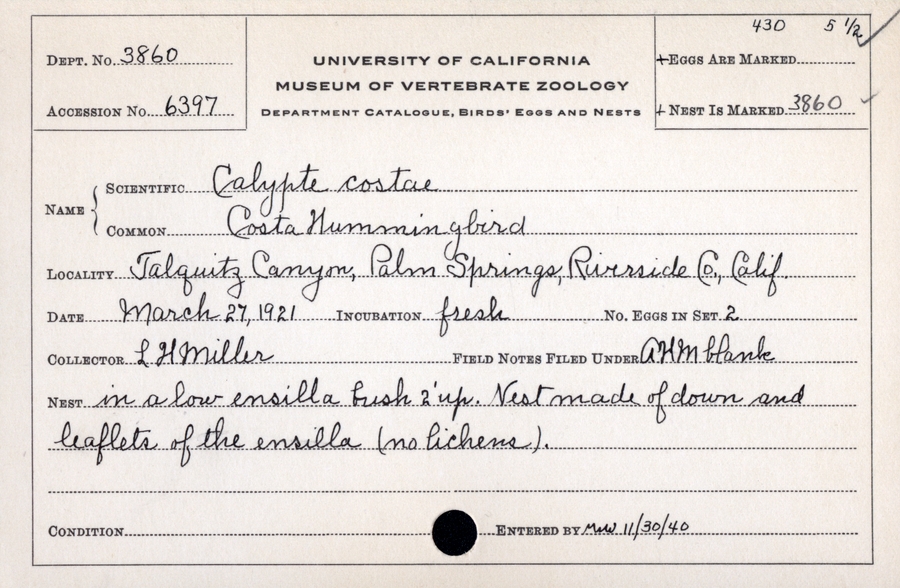 430 5 1/2
DEPT. No. 3860
UNIVERSITY OF CALIFORNIA
+EGGS ARE MARKED
MUSEUM OF VERTEBRATE ZOOLOGY
ACCESSION No. 6397
DEPARTMENT CATALOGUE, BIRDS' EGGS AND NESTS
+ NEST IS MARKED 3860
NAME
SCIENTIFIC Calypte costae
COMMON Costa Hummingbird
LOCALITY Talquitz Canyon, Palm Springs, Riverside Co., Calif.
DATE March 27, 1921 INCUBATION fresh No. EGGS IN SET 2
COLLECTOR L H Miller FIELD NOTES FILED UNDER AHM blank
NEST in a low ensilla bush 2' up. Nest made of down and
leaflets of the ensilla (no lichens).
CONDITION ENTERED BY MWW 11/30/40